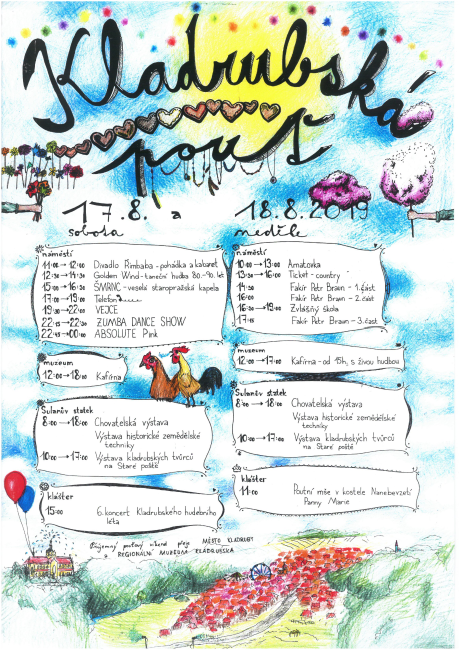 Kladrubská
pouť
17.8. a 18.8.2019
sobota
neděle
náměstí
11:00 → 12:00 Divadlo Rimbaba - pohádka a kabaret
12:30 → 14:30 Golden Wind - taneční hudba 80.-90. let
15:00 → 16:30 ŠMRNC - veselá staropražská kapela
17:00 → 19:00 Telefon
19:30 → 22:00 VEJCE
22:15 → 22:30 ZUMBA DANCE SHOW
22:45 → 00:00 ABSOLUTE Pink
muzeum
12:00 → 18:00 Kafírna
Sulanův statek
8:00 → 18:00 Chovatelská výstava
Výstava historické zemědělské
techniky
10:00 → 17:00 Výstava kladrubských tvůrců
na Staré poště
klášter
15:00 6. koncert Kladrubského hudebního
léta
náměstí
10:00 → 13:00 Amatovka
13:30 → 16:00 Ticket - country
14:30 Fakír Petr Braun - 1. část
16:00 Fakír Petr Braun - 2. část
16:30 → 19:00 Zvláštní škola
17:45 Fakír Petr Braun - 3. část
muzeum
12:00 → 17:00 Kafírna - od 15h, s živou hudbou
Sulanův statek
8:00 → 18:00 Chovatelská výstava
Výstava historické zemědělské
techniky
10:00 → 17:00 Výstava kladrubských tvůrců
na Staré poště
klášter
11:00 Poutní mše v kostele Nanebevzetí
Panny Marie
Příjemný pouťový víkend přeje MĚSTO KLADRUBY
a REGIONÁLNÍ MUZEUM KLADRUBSKA